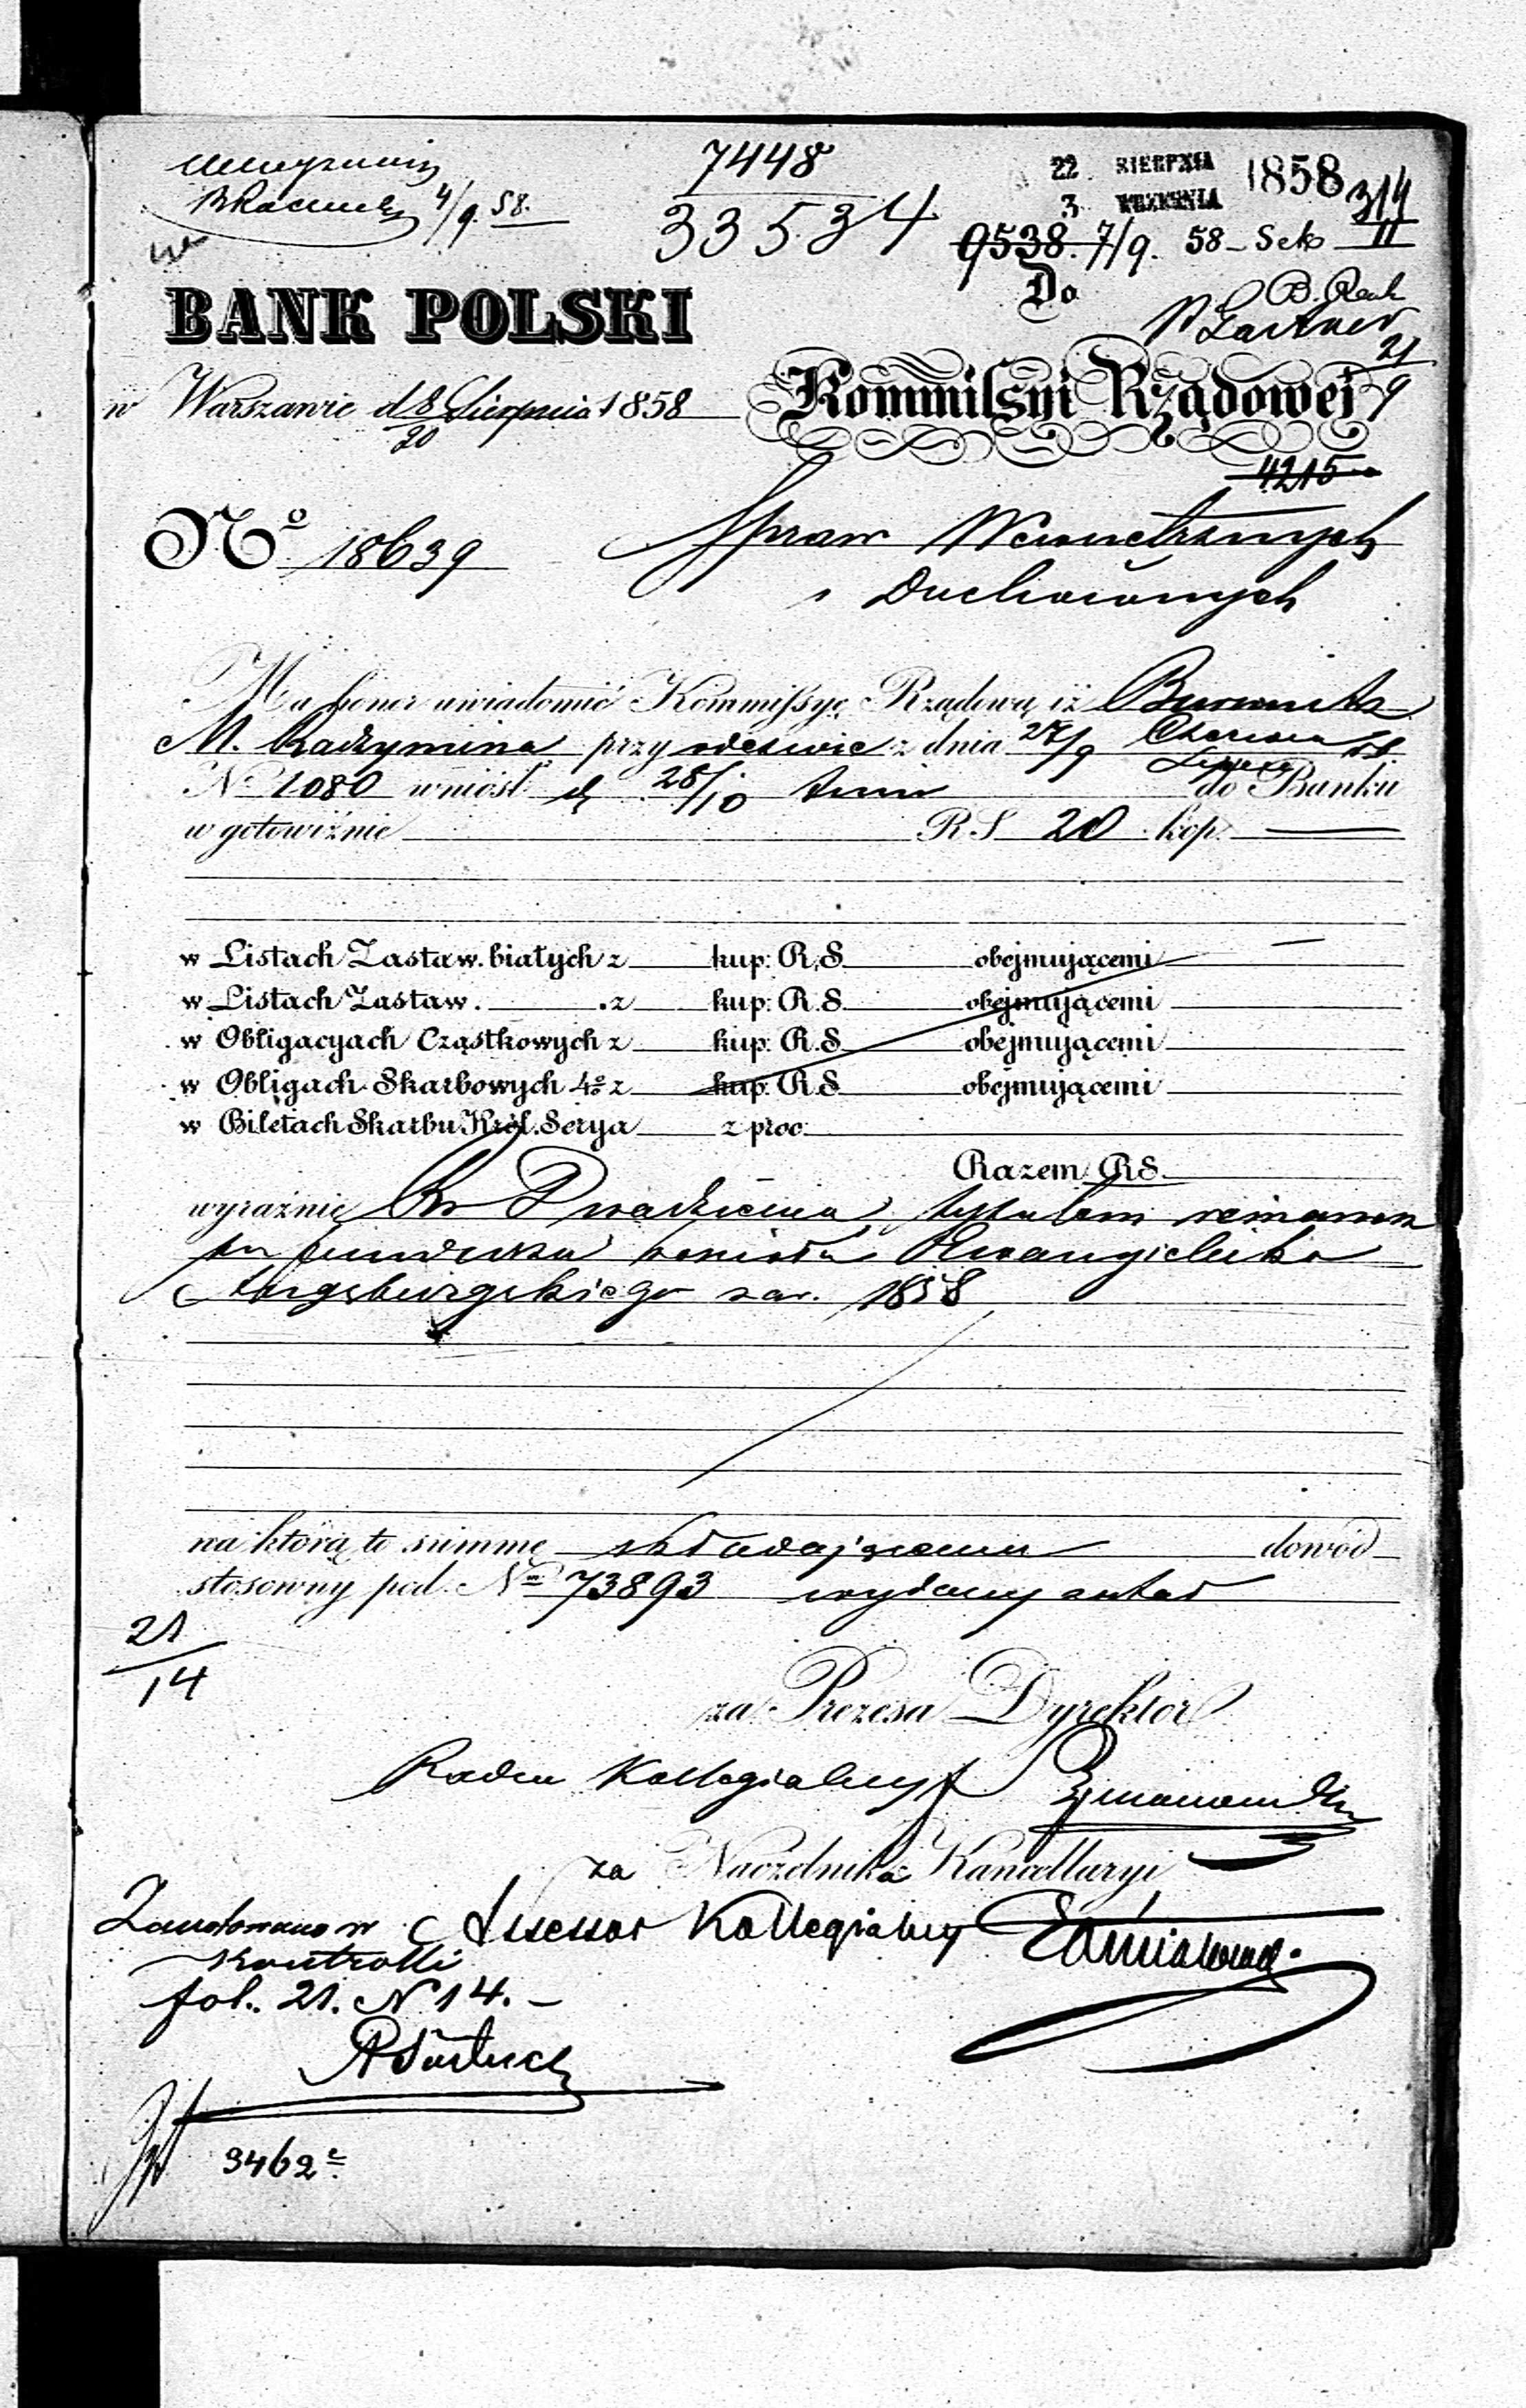 7448
22 SIERPNIA 1858
3 WRZEŚNIA
314
4/9 58.
33534
9538. 7/9. 58 - Sek II
Do
BANK POLSKI
21
9
w Warszawie d 8/20 Sierpnia 1858
Kommissyi Rządowej
4215
No 18639
Spraw Wewnetrznych
i Duchownych
Ma honor uwiadomić Kommissyę Rządową iż Burmistz
M. Radzymina przy odezwie z dnia 27/9 Czerwca Lipca 58
No 1080 wniósł d 28/10 do Banku
w gotowiźnie R.S. 20 kop.
w Listach Zastaw. białych z kup: R.S obejmującemi
w Listach Zastaw. z kup: R.S obejmującemi
w Obligacyach Cząstkowych z kup: R.S obejmującemi
w Obligach Skarbowych 4% z kup: R.S obejmującemi
w Biletach Skarbu Król. Serya z proc:
Razem RS.
wyraźnie Rs Dwadzieścia tytułem
funduszu kościoła Ewangielicko
Augsburgskiego za r. 1858
na którą to summę składającemu dowód
stosowny pod No 73893 wydany został
21
14
za Prezesa Dyrektor
Radca Kollegialny
za Naczelnika Kancellaryi
Zanotowano w
Assessor Kollegialny
Kontrolli
fol. 21. N 14. -
3462